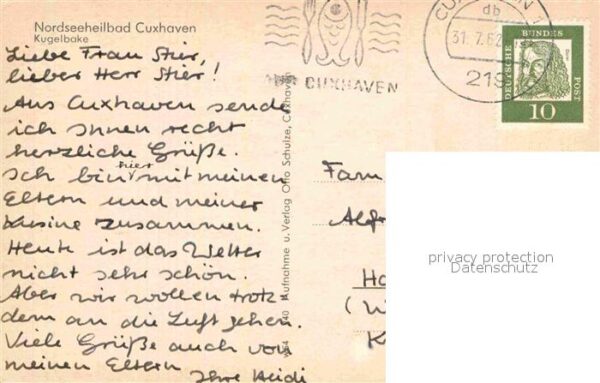 Nordseeheilbad Cuxhaven
Kugelbake
Liebe Frau Stier,
lieber Herr Stier!
Aus Cuxhaven sende
ich Ihnen recht
herzliche Grüße.
Ich bin hier mit meinen
Eltern und meiner
Kusine zusammen.
Heute ist das Wetter
nicht sehr schön.
Aber wir wollen trotz-
dem an die Luft gehen.
Viele Grüße auch von
meinen Eltern
Ihre Heidi
Aufnahme u. Verlag Otto Schulze, Cuxhaven
CUXHAVEN
CUXHAVEN 1
db
31.7.62
219
DEUTSCHE BUNDESPOST
10
Fam
Alfr
Ha
(W
K
privacy protection
Datenschutz